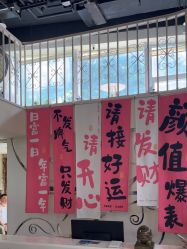 日富一日
年富一年
不发脾气
只发财
请开心
请接好运
请发财
颜值爆表